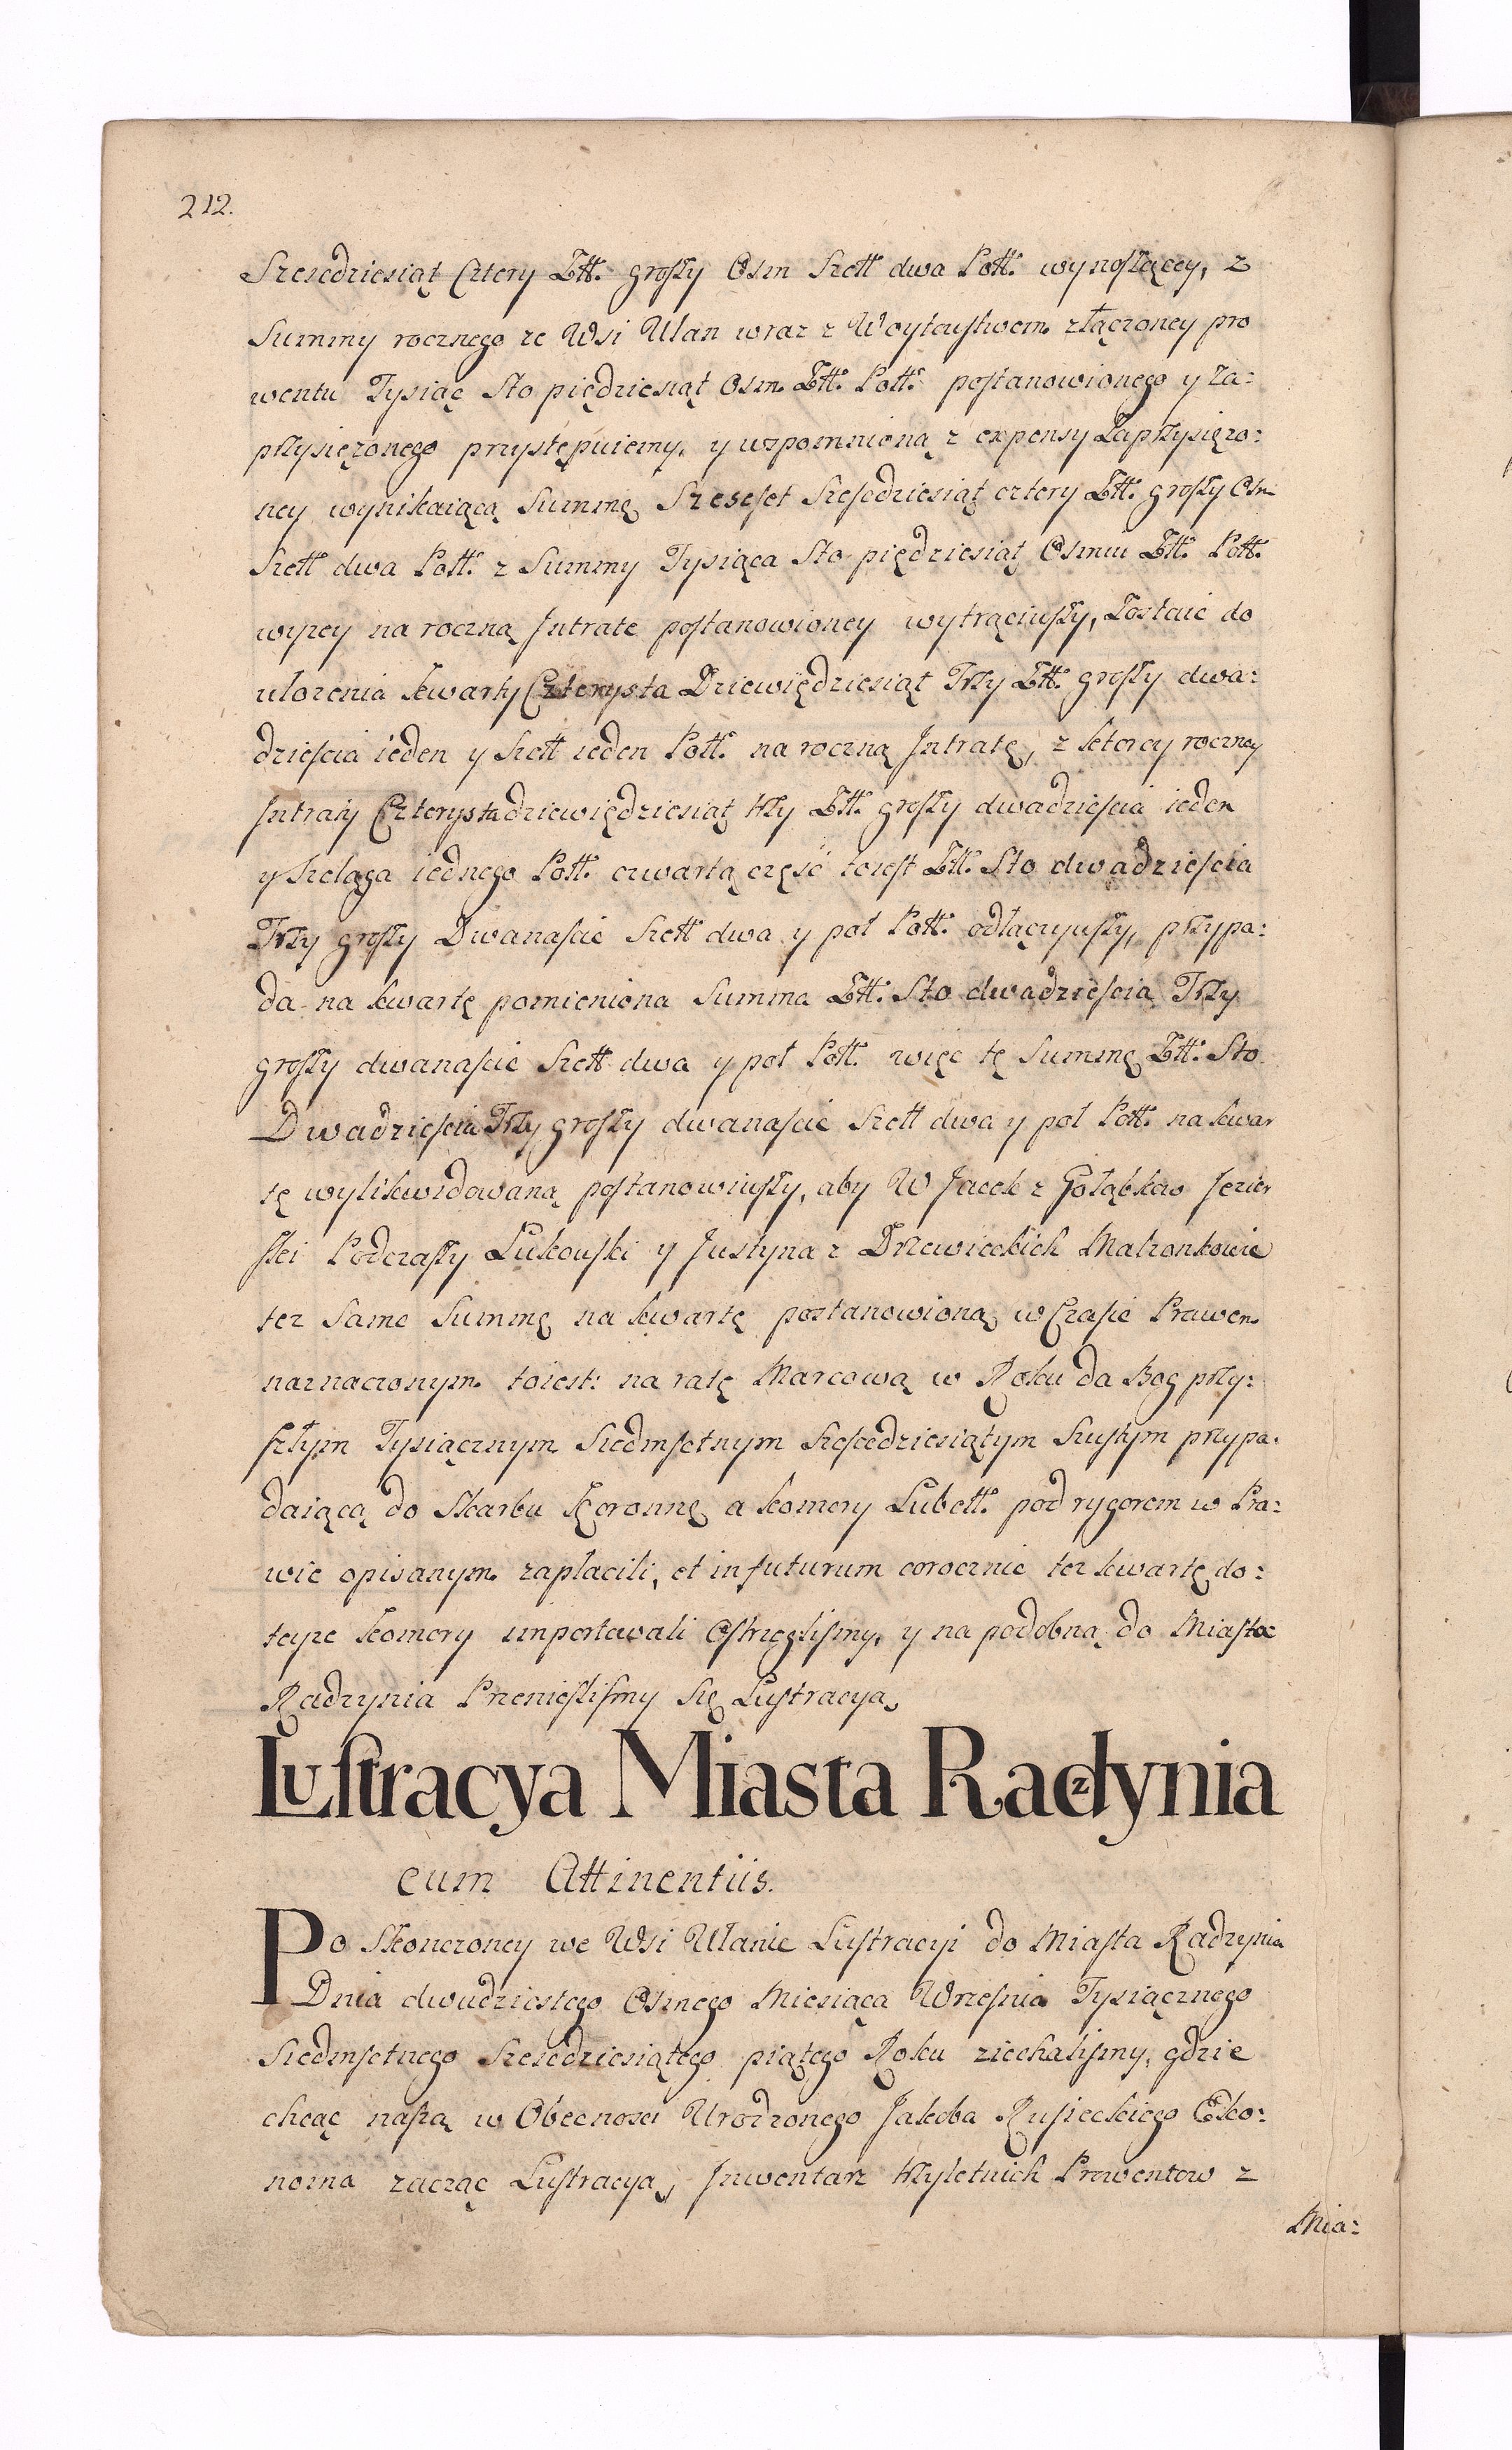 212.
Szescdziesiąt Cztery Złł. grossy Osm Szell dwa Poll. wynoszącey, z
Summy rocznego ze Wsi Ulan wraz z Woytowstwem złączoney pro
wentu Tysiąc Sto pięcdziesiąt Osm Złł. Poll. postanowionego y Za:
przysięzonego przystępuiemy, y wspomnioną z expensy Zaprzysięzo:
ney wynikaiącą Summę Szescset Szescdziesiąt cztery Złł. grossy Osm
Szell dwa Poll. z Summy Tysiąca Sto pięcdziesiąt Osmiu Złł. Poll.
wyzey na roczną Jntratę postanowioney wytrąciwszy, Zostaie do
ułozenia kwarty Czterysta Dziewięcdziesiąt Trzy Złł. grossy dwa:
dziescia ieden y Szell ieden Poll. na roczną Jntratę, z ktorey roczney
Jntraty Czterysta dziewięcdziesiąt trzy Złł. grossy dwadziescia ieden
y Szeląga iednego Poll. czwartą częsc toiest Złł. Sto dwadziescia
Trzy grossy Dwanascie Szell dwa y poł Poll. odłączywszy, przypa:
da na kwartę pomieniona Summa Złł. Sto dwadziescia Trzy
grossy dwanascie Szell dwa y poł Poll. więc tę Summę Złł. Sto
Dwadziescia Trzy grossy dwanascie Szell dwa y poł Poll. na kwar
tę wylikwidowaną postanowiwszy, aby W Jacek z Gołąbkow Jezier
ski Podczaszy Łukowski y Justyna z Drzewieckich Małzonkowie
tez Same Summę na kwartę postanowioną w Czasie Prawem
naznaczonym toiest: na ratę Marcową w Roku da Bog przy:
szłym Tysiącznym Siedmsetnym Szescdziesiątym Szustym przypa:
daiącą do Skarbu Koronne a komory Lubell. pod rygorem w Pra:
wie opisanym zapłacili, et in futurum corocznie tez kwartę do:
teyze komory importowali Ostrzeglismy, y na podobną do Miasta
Radzynia Przeniesliśmy Się Lustracyą
Lustracya Miasta Radzynia
cum Attinentiis.
Po Skonczoney we Wsi Ulanie Lustracyi do Miasta Radzynia
Dnia dwudziestego Osmego Miesiąca Wrzesnia Tysiącznego
Siedmsetnego Szescdziesiątego piątego Roku ziechalismy, gdzie
chcąc naszą w Obecnosci Urodzonego Jakoba Rusieckiego Eko:
noma zacząc Lustracyą, Jnwentarz trzyletnich Prowentow z
Mia: